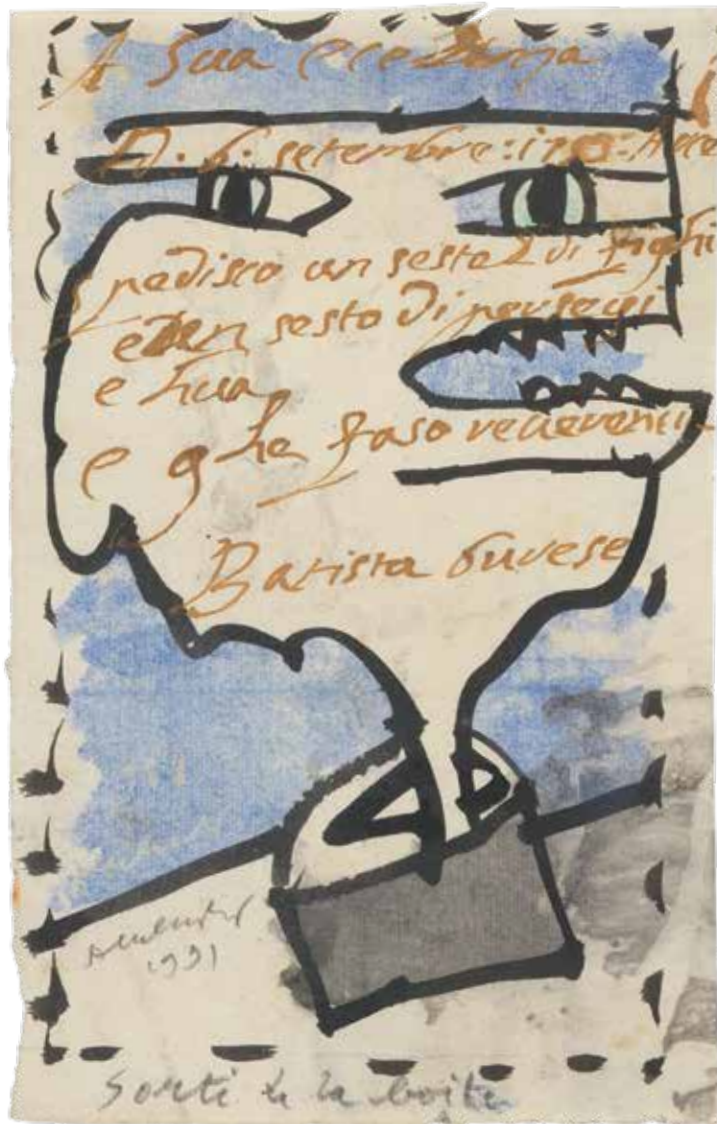 A Sua ecce
A: 6: setembre: 17
Spedisco un sesto di fighi
e un sesto di persegi
e hua
e ghe faso reverenci
Batista
1991
Sorti de la boite